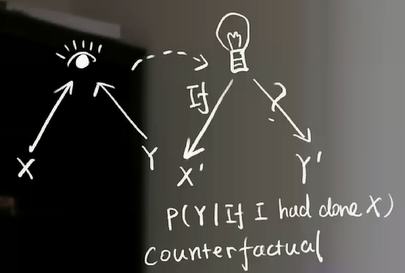 If ?
X Y X' Y'
P(Y|If I had done X)
counterfactual